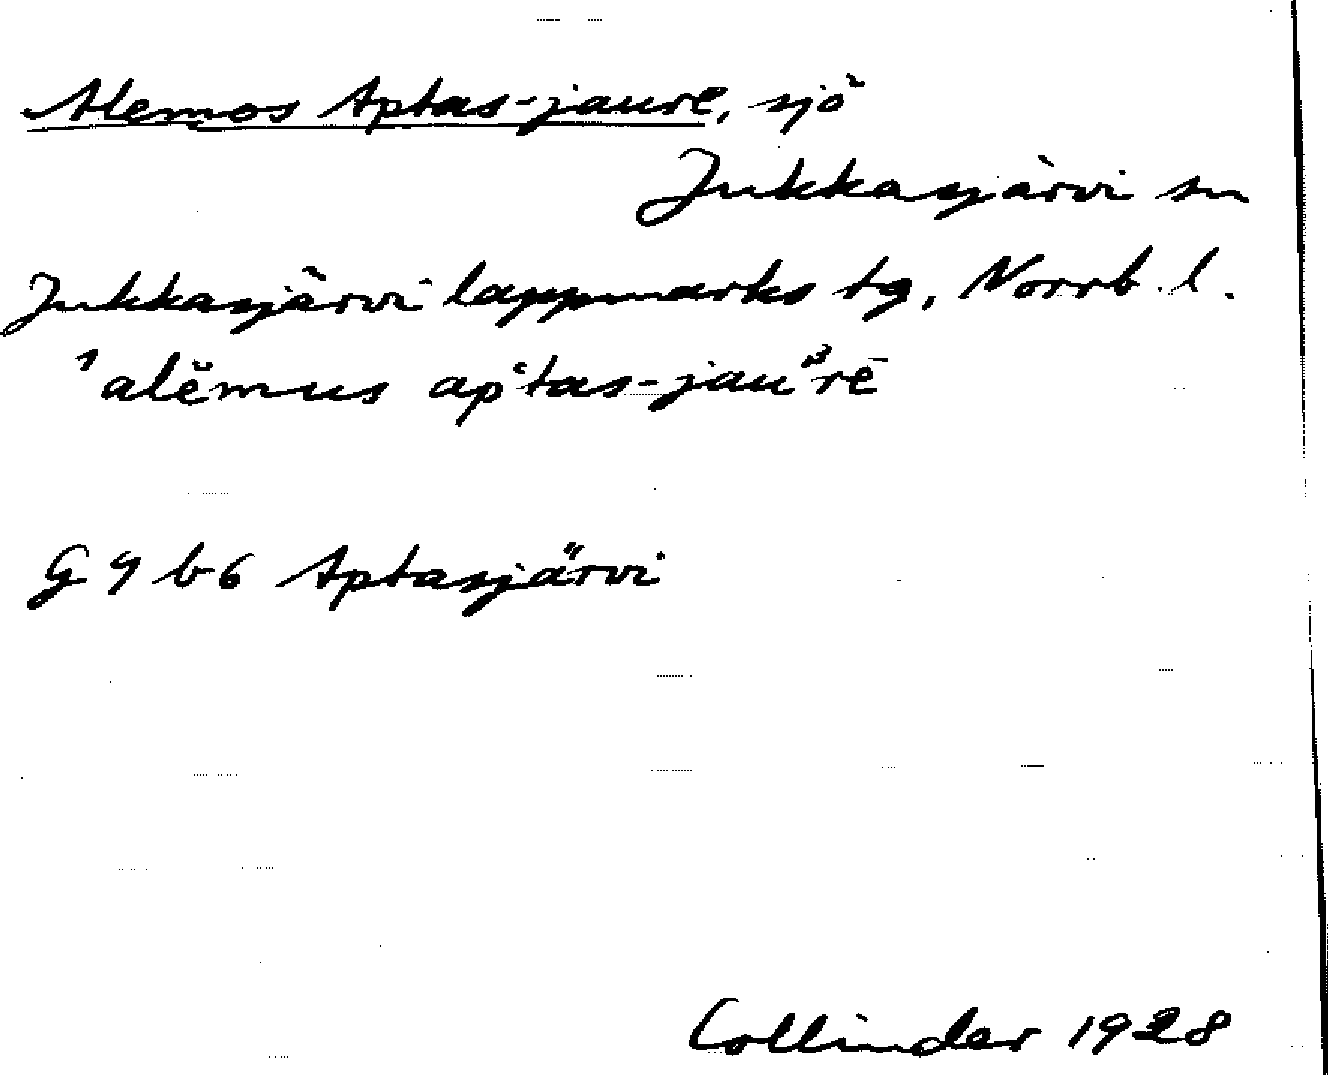 Alemos Aptas-jaure, sjö
Jukkasjärvi sn
Jukkasjärvi lappmarks tg, Norrb. l.
'alēmus ap'tas-jauᵘrē
G 9 b 6 Aptasjärvi
Collinder 1928